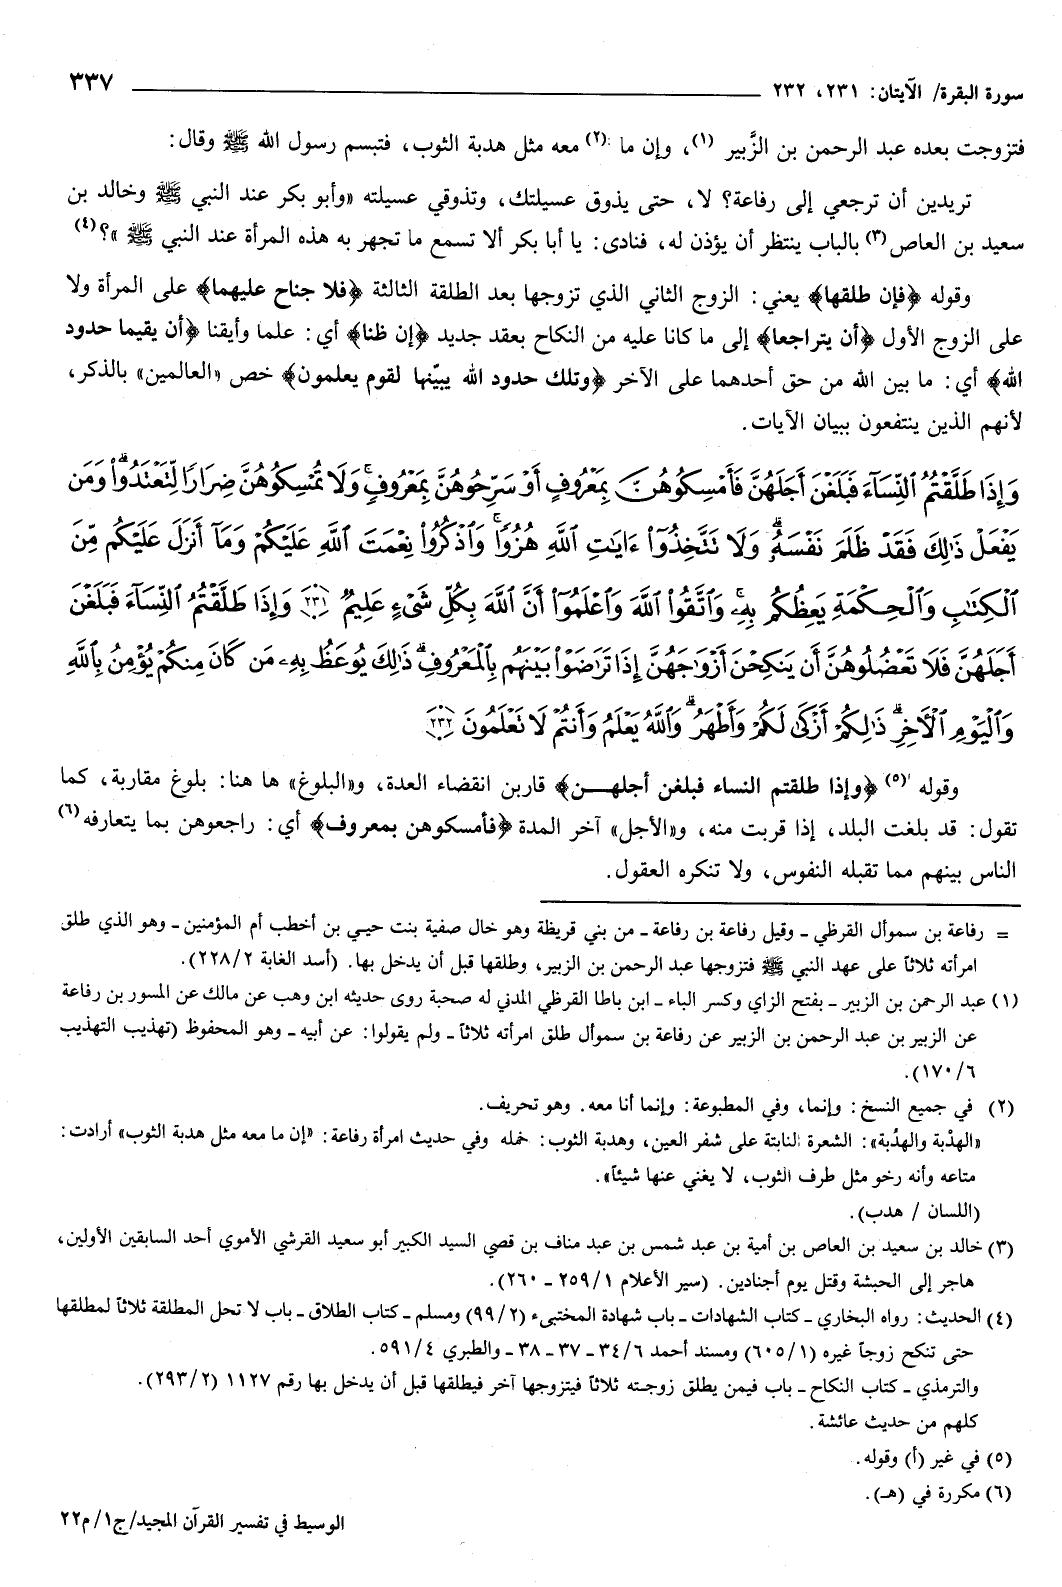 سورة البقرة/ الآيتان: ٢٣١، ٢٣٢ ٣٣٧
فتزوجت بعده عبد الرحمن بن الزَّبير (١)، وإن ما (٢) معه مثل هدبة الثوب، فتبسم رسول الله ﷺ وقال:
تريدين أن ترجعي إلى رفاعة؟ لا، حتى يذوق عسيلتك، وتذوقي عسيلته «وأبو بكر عند النبي ﷺ وخالد بن
سعيد بن العاص (٣) بالباب ينتظر أن يؤذن له، فنادى: يا أبا بكر ألا تسمع ما تجهر به هذه المرأة عند النبي ﷺ »؟(٤)
وقوله ﴿فإن طلقها﴾ يعني: الزوج الثاني الذي تزوجها بعد الطلقة الثالثة ﴿فلا جناح عليهما﴾ على المرأة ولا
على الزوج الأول ﴿أن يتراجعا﴾ إلى ما كانا عليه من النكاح بعقد جديد ﴿إن ظنا﴾ أي: علما وأيقنا ﴿أن يقيما حدود
الله﴾ أي: ما بين الله من حق أحدهما على الآخر ﴿وتلك حدود الله يبيّنها لقوم يعلمون﴾ خص «العالمين» بالذكر،
لأنهم الذين ينتفعون ببيان الآيات.
وَإِذَا طَلَّقْتُمُ ٱلنِّسَآءَ فَبَلَغْنَ أَجَلَهُنَّ فَأَمْسِكُوهُنَّ بِمَعْرُوفٍ أَوْ سَرِّحُوهُنَّ بِمَعْرُوفٍۚ وَلَا تُمْسِكُوهُنَّ ضِرَارًا لِّتَعْتَدُوا۟ۚ وَمَن
يَفْعَلْ ذَٰلِكَ فَقَدْ ظَلَمَ نَفْسَهُۥۚ وَلَا تَتَّخِذُوٓا۟ ءَايَٰتِ ٱللَّهِ هُزُوًاۚ وَٱذْكُرُوا۟ نِعْمَتَ ٱللَّهِ عَلَيْكُمْ وَمَآ أَنزَلَ عَلَيْكُم مِّنَ
ٱلْكِتَٰبِ وَٱلْحِكْمَةِ يَعِظُكُم بِهِۦۚ وَٱتَّقُوا۟ ٱللَّهَ وَٱعْلَمُوٓا۟ أَنَّ ٱللَّهَ بِكُلِّ شَىْءٍ عَلِيمٌ ﴿٢٣١﴾ وَإِذَا طَلَّقْتُمُ ٱلنِّسَآءَ فَبَلَغْنَ
أَجَلَهُنَّ فَلَا تَعْضُلُوهُنَّ أَن يَنكِحْنَ أَزْوَٰجَهُنَّ إِذَا تَرَٰضَوْا۟ بَيْنَهُم بِٱلْمَعْرُوفِۗ ذَٰلِكَ يُوعَظُ بِهِۦ مَن كَانَ مِنكُمْ يُؤْمِنُ بِٱللَّهِ
وَٱلْيَوْمِ ٱلْأَخِرِۗ ذَٰلِكُمْ أَزْكَىٰ لَكُمْ وَأَطْهَرُۗ وَٱللَّهُ يَعْلَمُ وَأَنتُمْ لَا تَعْلَمُونَ ﴿٢٣٢﴾
وقوله (٥) ﴿وإذا طلقتم النساء فبلغن أجلهــن﴾ قاربن انقضاء العدة، و«البلوغ» ها هنا: بلوغ مقاربة، كما
تقول: قد بلغت البلد، إذا قربت منه، و«الأجل» آخر المدة ﴿فأمسكوهن بمعروف﴾ أي: راجعوهن بما يتعارفه (٦)
الناس بينهم مما تقبله النفوس، ولا تنكره العقول.
= رفاعة بن سموأل القرظي ـ وقيل رفاعة بن رفاعة ـ من بني قريظة وهو خال صفية بنت حيي بن أخطب أم المؤمنين ـ وهو الذي طلق
امرأته ثلاثاً على عهد النبي ﷺ فتزوجها عبد الرحمن بن الزبير، وطلقها قبل أن يدخل بها. (أسد الغابة ٢٢٨/٢).
(١) عبد الرحمن بن الزبير ـ بفتح الزاي وكسر الباء ـ ابن باطا القرظي المدني له صحبة روى حديثه ابن وهب عن مالك عن المسور بن رفاعة
عن الزبير بن عبد الرحمن بن الزبير عن رفاعة بن سموأل طلق امرأته ثلاثاً ـ ولم يقولوا: عن أبيه ـ وهو المحفوظ (تهذيب التهذيب
١٧٠/٦).
(٢) في جميع النسخ: وإنما، وفي المطبوعة: وإنما أنا معه. وهو تحريف.
«الهدْبة والهدُبة»: الشعرة النابتة على شفر العين، وهدبة الثوب: خمله وفي حديث امرأة رفاعة: «إن ما معه مثل هدبة الثوب» أرادت:
متاعه وأنه رخو مثل طرف الثوب، لا يغني عنها شيئاً».
(اللسان / هدب).
(٣) خالد بن سعيد بن العاص بن أمية بن عبد شمس بن عبد مناف بن قصي السيد الكبير أبو سعيد القرشي الأموي أحد السابقين الأولين،
هاجر إلى الحبشة وقتل يوم أجنادين. (سير الأعلام ٢٥٩/١ ـ ٢٦٠).
(٤) الحديث: رواه البخاري ـ كتاب الشهادات ـ باب شهادة المختبىء (٩٩/٢) ومسلم ـ كتاب الطلاق ـ باب لا تحل المطلقة ثلاثاً لمطلقها
حتى تنكح زوجاً غيره (٦٠٥/١) ومسند أحمد ٣٤/٦ ـ ٣٧ ـ ٣٨ ـ والطبري ٥٩١/٤.
والترمذي ـ كتاب النكاح ـ باب فيمن يطلق زوجته ثلاثاً فيتزوجها آخر فيطلقها قبل أن يدخل بها رقم ١١٢٧ (٢٩٣/٢).
كلهم من حديث عائشة.
(٥) في غير (أ) وقوله.
(٦) مكررة في (هـ).
الوسيط في تفسير القرآن المجيد/ج١/م٢٢